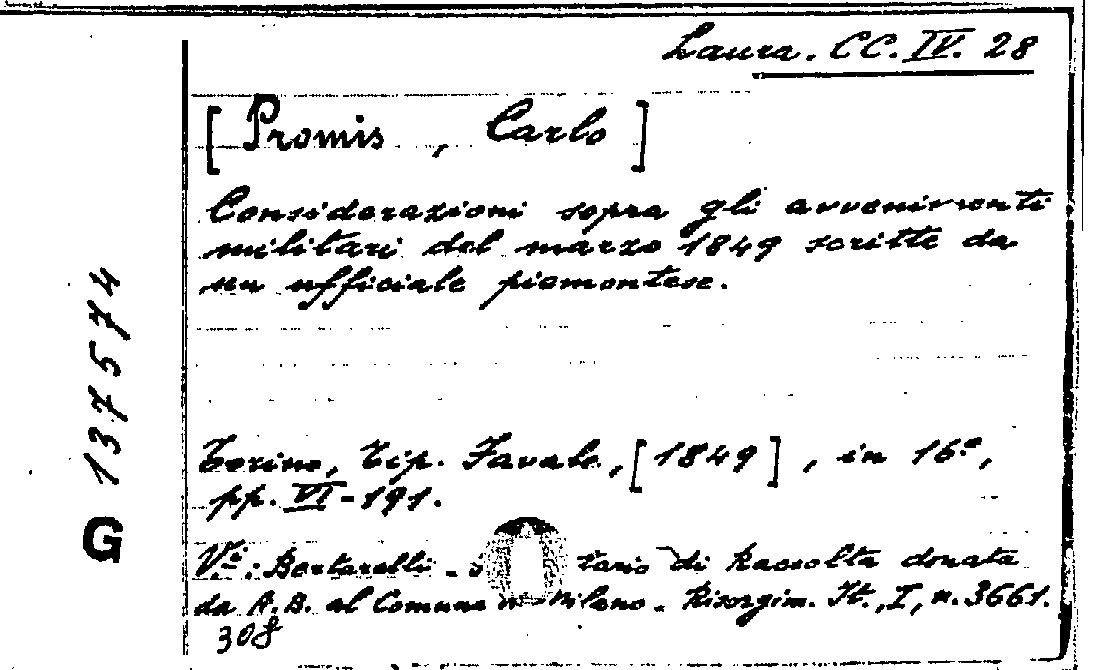 Laura. CC. IV. 28
[Promis, Carlo]
Considerazioni sopra gli avvenimenti
militari del marzo 1849 scritte da
un ufficiale piemontese.
Torino, Tip. Favale, [1849], in 16º,
pp. VI-191.
Vi: Bertarelli - tario di Raccolta donata
da A.B. al Comune Milano. Risorgim. It., I, n. 3661.
308
G 137574